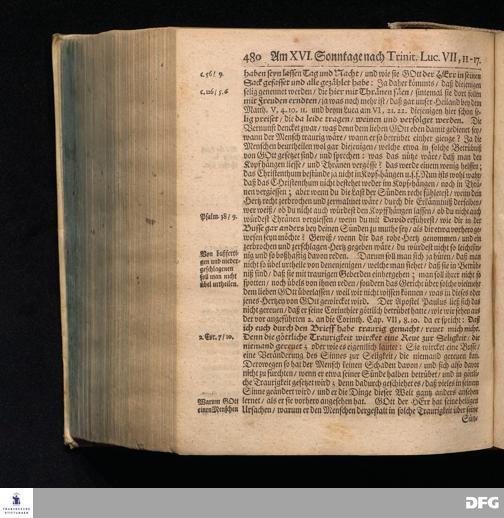 480 Am XVI. Sonntage nach Trinit. Luc. VII, 11-17.
c. 56/ 9.
haben seyn lassen Tag und Nacht/ und wie sie GOtt der HErr in seinen
Sack gefasset und alle gezählet habe: Ja daher kömmts/ daß diejenigen
c. 126/ 5. 6
selig genennet werden/ die hier mit Thränen säen/ sintemal sie dort sollen
mit Freuden erndten/ ja was noch mehr ist/ daß gar unser Heiland bey dem
Matth. V, 4. 10. 11. und beym Luca am VI, 21. 22. diejenigen hier schon se-
lig preiset/ die da leide tragen/ weinen und verfolget werden. Die
Vernunft dencket zwar/ was denn dem lieben GOtt eben damit gedienet sey/
wann der Mensch traurig wäre/ wann er so betrübet einher gienge? Ja die
Menschen beurtheilen wol gar diejenigen/ welche etwa in solche Betrübniß
von GOtt gesetzet sind/ und sprechen: was das nütze wäre/ daß man den
Kopf hängen liesse/ und Thränen vergösse? Das werde einem wenig helffen;
das Christenthum bestünde ja nicht in Kopf-hängen u.s.f. Nun ists wohl wahr/
daß das Christenthum nicht bestehet weder im Kopf-hängen/ noch in Thrä-
nen vergiessen; aber wenn du die Last der Sünden recht fühletest/ wenn dein
Hertz recht gebrochen und zermalmet wäre/ durch die Erkänntniß derselben/
wer weiß/ ob du nicht auch würdest den Kopff hängen lassen/ ob du nicht auch
Psalm. 38/ 9.
würdest Thränen vergiessen/ wenn du mit David erführest/ wie dir in der
Busse gar anders bey deinen Sünden zu muthe sey/ als dir etwa vorhero ge-
wesen seyn möchte? Gewiß/ wenn dir das rohe Hertz genommen/ und ein
zerbrochen und zerschlagen Hertz gegeben wäre/ du würdest nicht so leichtsin-
Von bußferti-
nig und so boßhafftig davon reden. Darum soll man sich ja hüten/ daß man
gen und nieder-
nicht so übel urtheile von denenjenigen/ welche man siehet/ daß sie in Betrüb-
geschlagenen
niß sind/ daß sie mit traurigen Geberden einhergehen; man soll ihrer nicht so
soll man nicht
spotten/ noch übels von ihnen reden/ sondern das Gericht über solche vielmehr
übel urtheilen.
dem lieben GOtt überlassen/ weil wir nicht wissen können/ was in dieses oder
jenes Hertzen von GOtt gewircket wird. Der Apostel Paulus ließ sich das
nicht gereuen/ daß er seine Corinthier göttlich betrübet hatte/ wie wir sehen aus
der vor angeführten 2. an die Corinth. Cap. VII, 8. 10. da er spricht: Daß
ich euch durch den Brieff habe traurig gemacht/ reuet mich nicht.
2. Cor. 7/ 10.
Denn die göttliche Traurigkeit wircket eine Reue zur Seligkeit/ die
niemand gereuet; oder wie es eigentlich lautet: Sie wircket eine Busse/
eine Veränderung des Sinnes zur Seligkeit/ die niemand gereuen kan.
Derowegen so hat der Mensch keinen Schaden davon/ und sich also davor
nicht zu fürchten/ wenn er etwa seiner Sünde halben betrübet/ und in göttli-
che Traurigkeit gesetzet wird; denn dadurch geschiehet es/ daß vieles in seinem
Sinne geändert wird/ und er die Dinge dieser Welt gantz anders ansehen
Warum GOtt
lernet/ als er sie vorhero angesehen hat. GOtt der HErr hat seine heiligen
einen Menschen
Ursachen/ warum er den Menschen dergestalt in solche Traurigkeit über seine
Sün-
TRANSKRIBUS
DFG